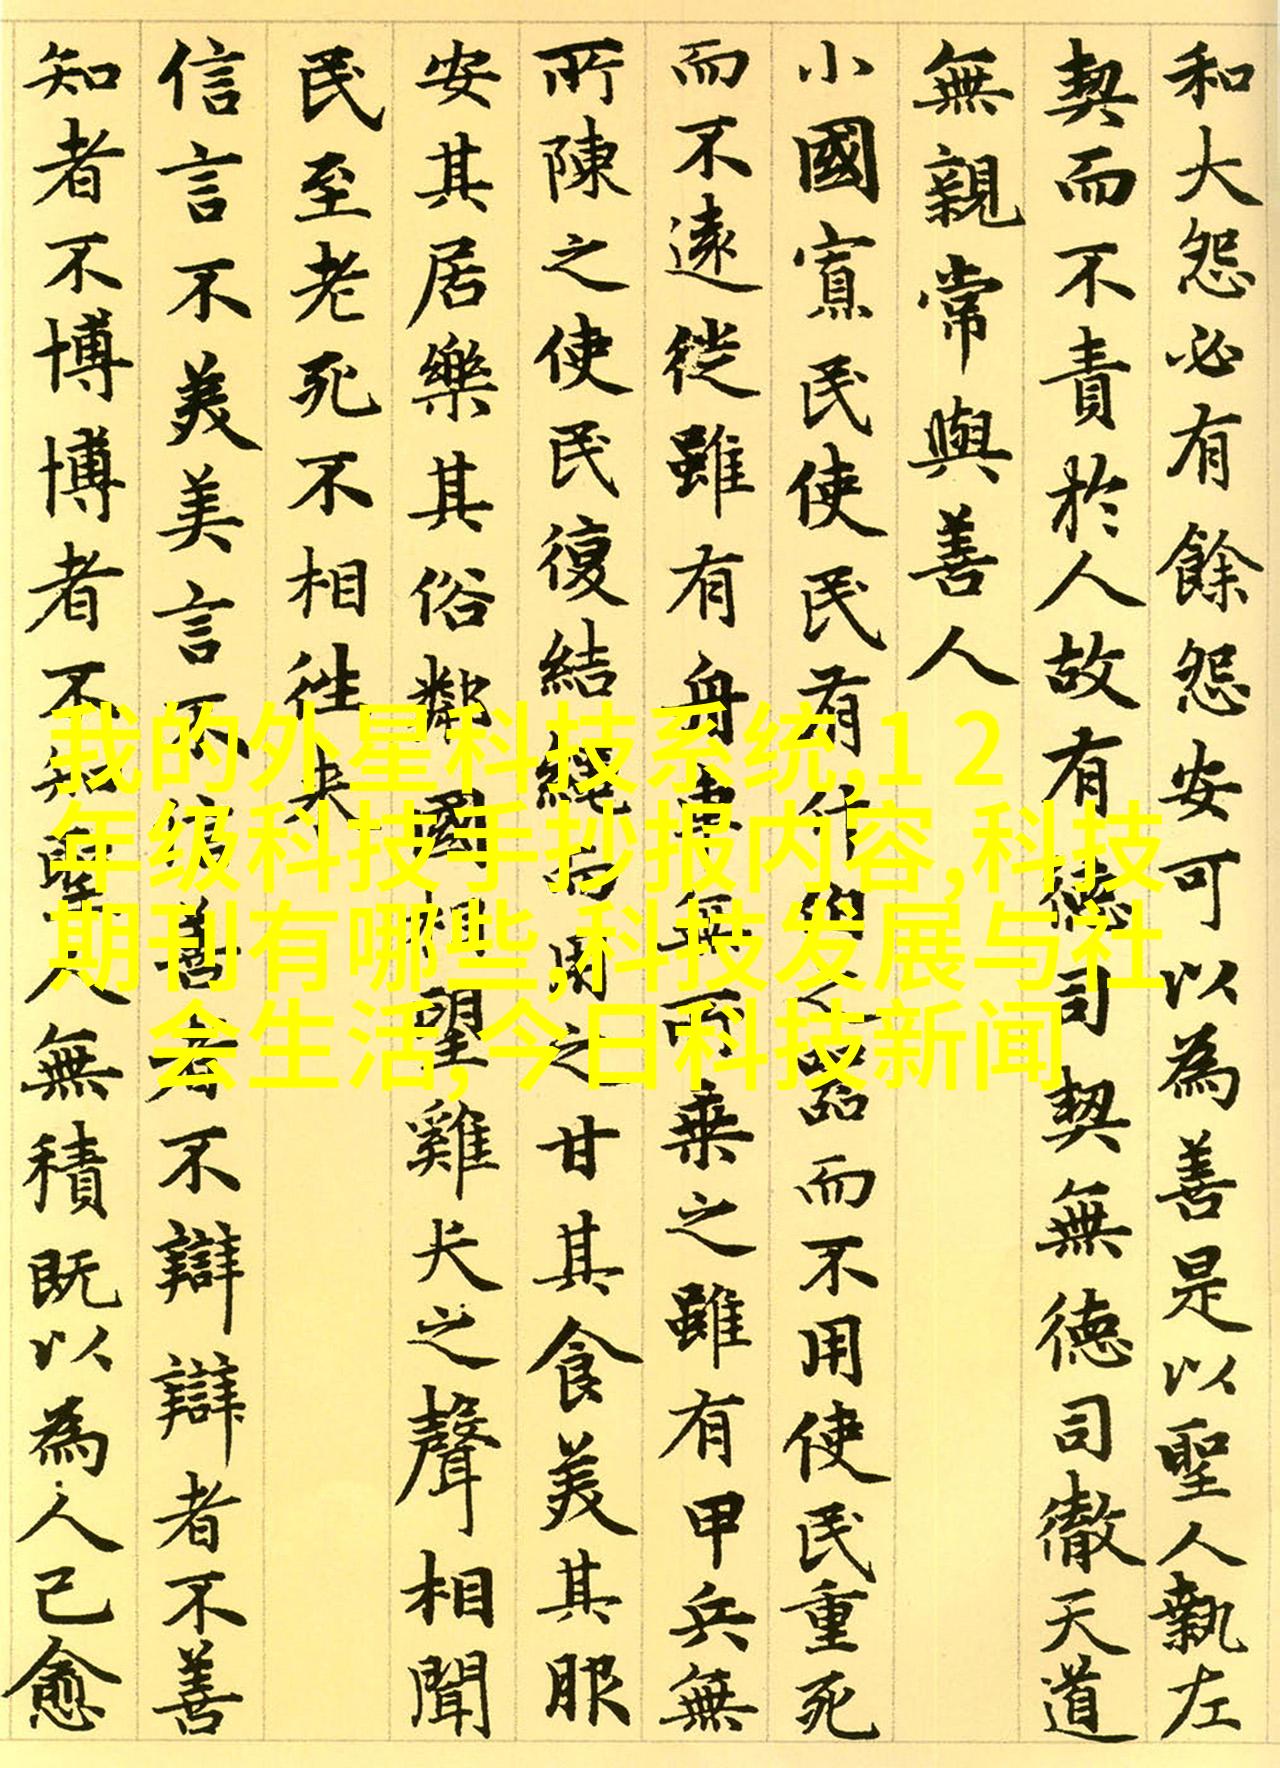 和大怨必有餘怨安可以為善是以聖人執左
契而不責於人故有德司契無德司徹天道
無親常與善人
小國寡民使民有什伯之器而不用使民重死
而不遠徙雖有舟車無所乗之雖有甲兵無
所陳之使民復結繩而用之甘其食美其服
安其居樂其俗鄰國相望雞犬之聲相聞
民至老死不相往来
信言不美美言不信善者不辯辯者不善
知者不博博者不知聖人無積既以為人己愈
我的外星科技系统,1 2
年级科技手抄报内容,科技
期刊有哪些,科技发展与社
会生活,今日科技新闻